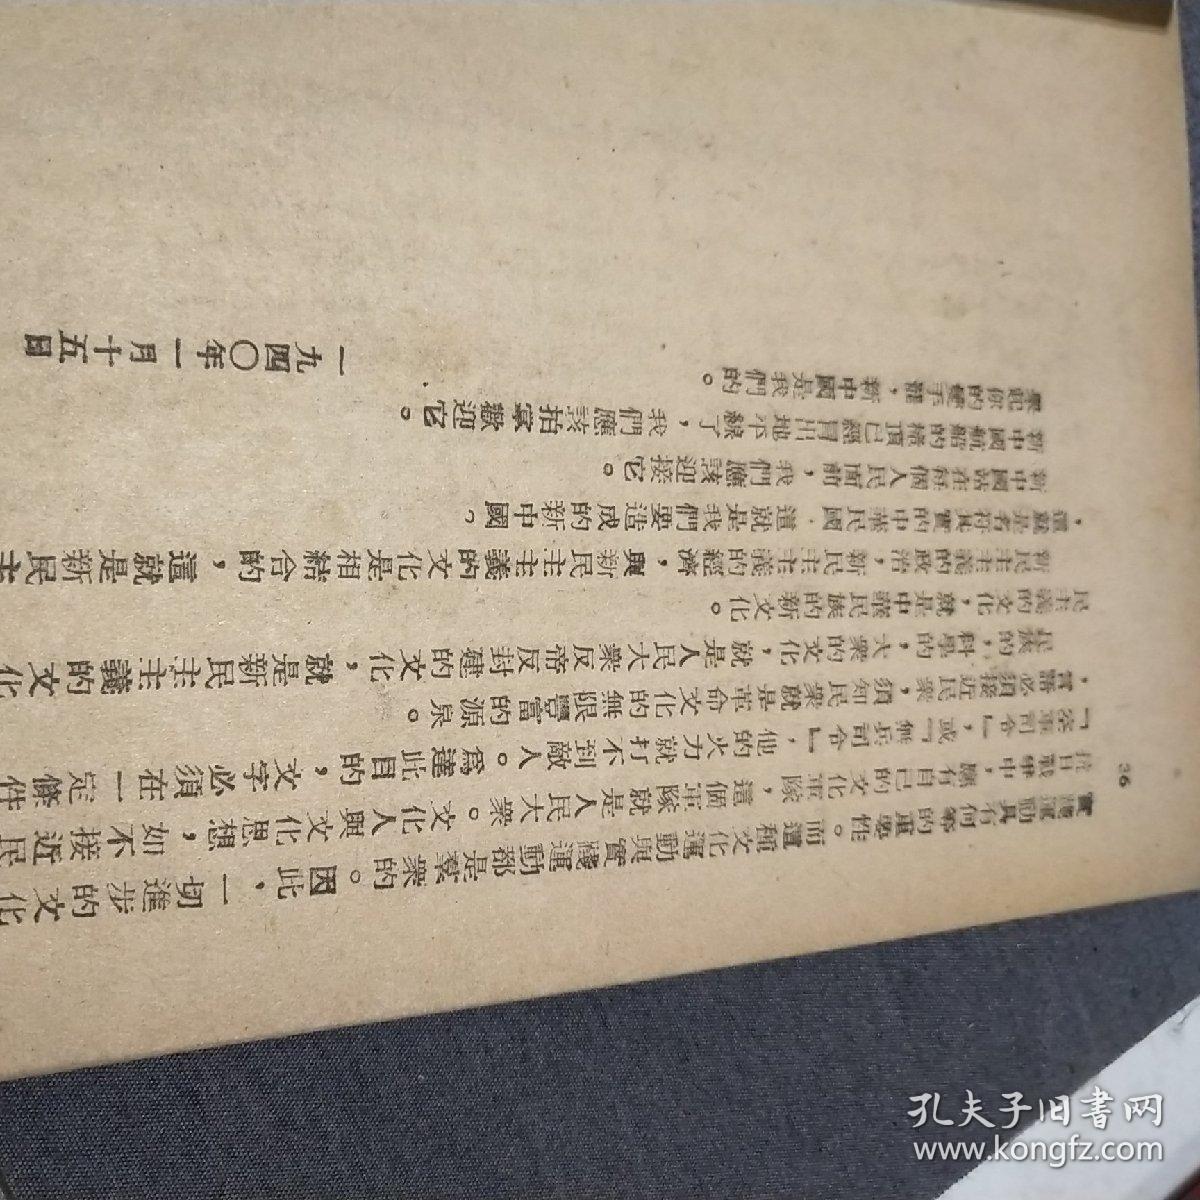 36
實踐運動具有何等的重要性。而這種文化運動與實踐運動都是羣衆的。因此,一切進步的文化
抗日戰爭中,應有自己的文化軍隊,這個軍隊就是人民大衆。文化人與文化思想,如不接近民
「空軍司令」,或「無兵司令」,他的火力就打不到敵人。爲達此目的,文字必須在一定條件
,言語必須接近民衆,須知民衆就是革命文化的無限豐富的源泉。
民族的,科學的,大衆的文化,就是人民大衆反帝反封建的文化,就是新民主主義的文化
民主義的文化,就是中華民族的新文化。
新民主主義的政治,新民主主義的經濟,與新民主主義的文化是相結合的,這就是新民主
,這就是名符其實的中華民國.這就是我們要造成的新中國。
新中國站在每個人民面前,我們應該迎接它。
新中國航船的桅頂已經冒出地平線了,我們應該拍掌歡迎它。
舉起你的雙手罷,新中國是我們的。
一九四〇年一月十五日
孔夫子旧书网
www.kongfz.com